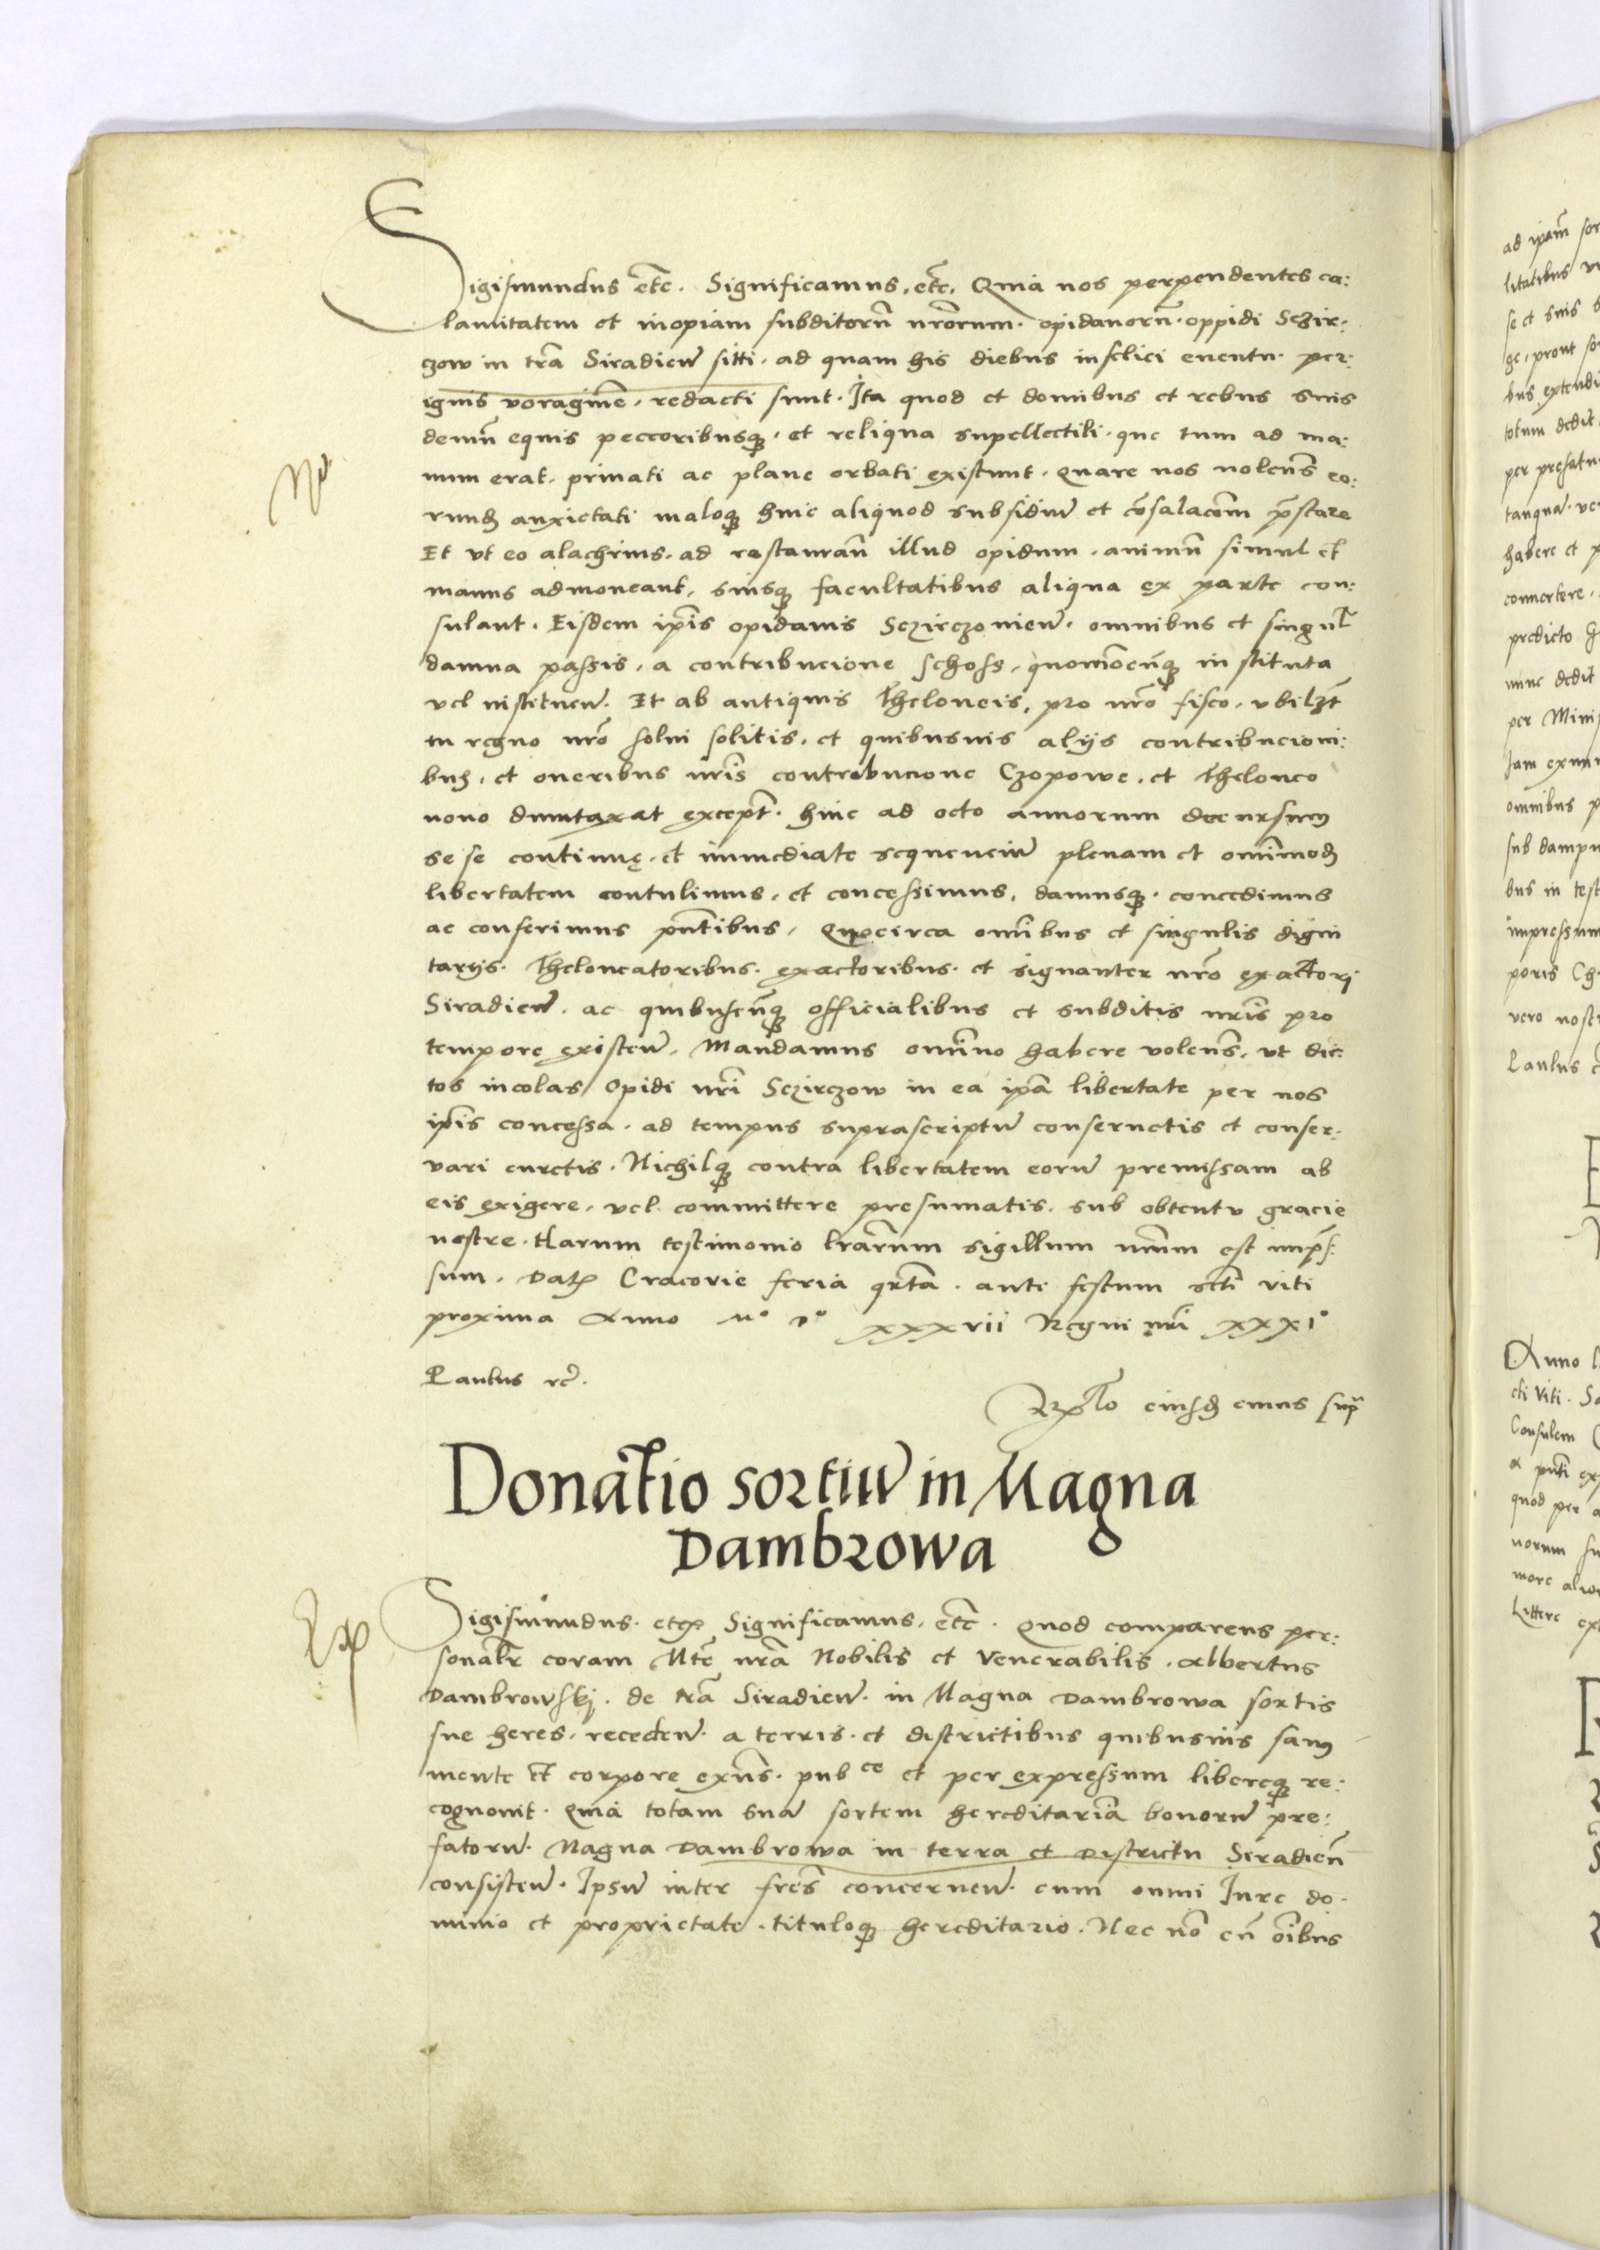 Sigismundus etc. Significamus, etc, Quia nos perpendentes ca:
lamitatem et inopiam subditorũ nrõrum. opidanorũ. oppidi Sczir:
czow in trã Siradien̄ sitti. ad quam his diebus infelici euentu. per:
ignis voraginẽ. redacti sunt. Ita quod et domibus et rebus suis
demũ equis peccoribusqꝫ. et reliqua supellectili. que tum ad ma:
num erat. priuati ac plane orbati existunt. Quare nos nolens̃ eo:
rundẽ anxietati maloqꝫ huic aliquod subsidiũ et cõsalacõm p̃stare
Et vt eo alachrius. ad restaurañ illud opidum. animũ simul et
manus admoneant, suisqꝫ facultatibus aliqua ex parte con:
sulant. Eisdem ip̃is opidanis Sczirczouien̄. omnibus et singul̃
damna passis. a contribucione schoss, quomõcũqꝫ instituta
vel instituen̄. Et ab antiquis Theloneis, pro nrõ fisco. vbilꝫt
in regno nrõ solui solitis. et quibusuis alijs contribucioni:
bus, et oneribus nrĩs contrebucione Czopowe, et Theloneo
nouo duntaxat except̃. huic ad octo annorum decursum
sese continuę. et immediate sequenciũ plenam et omĩmodã
libertatem contulimus, et concessimus, damusqꝫ. concedimus
ac conferimus pñtibus, Quocirca omĩbus et singulis digni
tarijs. Theloneatoribus. exactoribus. et signanter nrõ exactori
Siradien̄. ac quibuscũqꝫ officialibus et subditis nrĩs pro
tempore existen̄. Mandamus omĩno habere volens̃. vt dic:
tos incolas Opidi nrĩ Sczirczow in ea ip̃a libertate per nos
ip̃is concessa. ad tempus suprascriptũ conseruetis et conser:
vari curetis. Nichilqꝫ contra libertatem eorũ premissam ab
eis exigere. vel committere presumatis. sub obtentu gracie
nostre. Harum testimonio lrãrum sigillum nrũm est imp̃s:
sum. Datꝫ Cracovie feria qrta. ante festum scti viti
proxima Anno M° D° xxxvii Regni nrĩ xxxi°
Paulus rc̃.
Rlo eiusdẽ cuius sup̃
Donatio sortiũ in Magna
Dambrowa
Sigismundus. etcꝫ Significamus. etc. Quod comparens per:
sonalr coram Mte nrã Nobilis et Venerabilis. Albertus
Dambrowskj. de trã Siradien̄. in Magna Dambrowa sortis
sue heres. receden̄. a terris. et districtibus quibusuis sanus
mente et corpore exñs. pubce et per expressum libereqꝫ re:
cognouit. Quia totam suã sortem hereditariã bonorũ pre:
fatorũ. Magna Dambrowa in terra et Districtu Siradieñ
consisten̄. Ipsũ inter fres̃ concernen̄. cum omni Iure do.
minio et proprietate. tituloqꝫ hereditario. Nec nõ cũ oĩbus